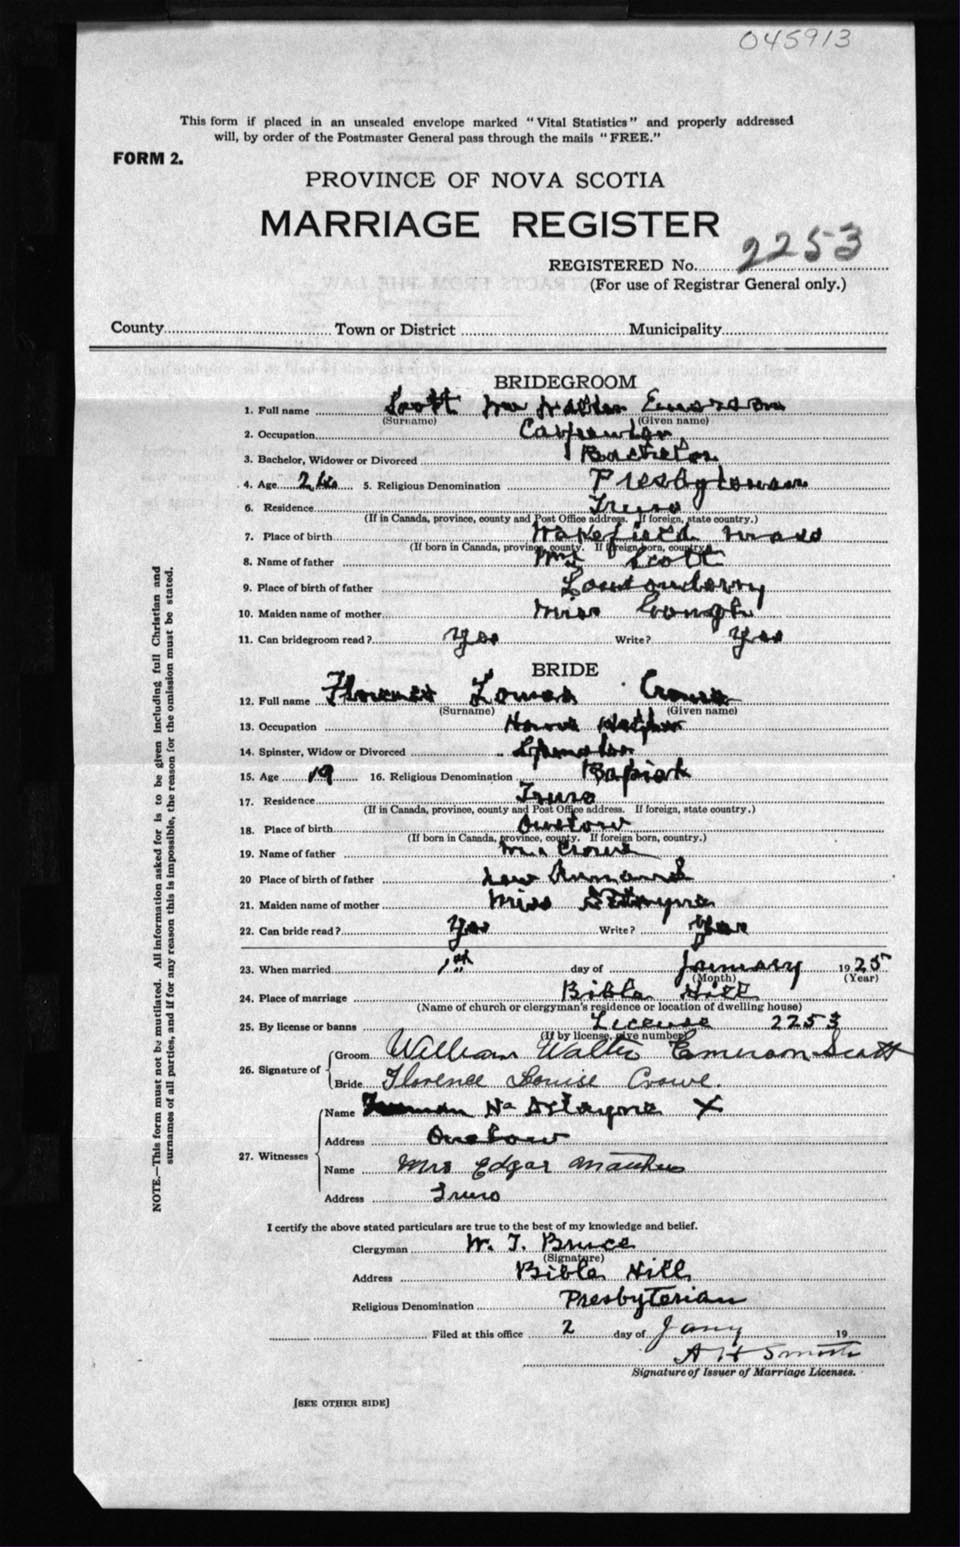 045913
This form if placed in an unsealed envelope marked "Vital Statistics" and properly addressed
will, by order of the Postmaster General pass through the mails "FREE."
FORM 2.
PROVINCE OF NOVA SCOTIA
MARRIAGE REGISTER
REGISTERED No. 2253
(For use of Registrar General only.)
County Town or District Municipality
BRIDEGROOM
1. Full name Scott Wm Walter Emerson
(Surname) (Given name)
2. Occupation Carpenter
3. Bachelor, Widower or Divorced Bachelor
4. Age 5. Religious Denomination Presbyterian
6. Residence Truro
(If in Canada, province, county and Post Office address. If foreign, state country.)
7. Place of birth Wakefield Mass
(If born in Canada, province, county. If foreign born, country.)
8. Name of father Scott
9. Place of birth of father Londonderry
10. Maiden name of mother Miss
11. Can bridegroom read? Yes Write? Yes
BRIDE
12. Full name Florence Crowe
(Surname) (Given name)
13. Occupation House
14. Spinster, Widow or Divorced Spinster
15. Age 19 16. Religious Denomination Bapist
17. Residence Truro
(If in Canada, province, county and Post Office address. If foreign, state country.)
18. Place of birth Onslow
(If born in Canada, province, county. If foreign born, country.)
19. Name of father Crowe
20 Place of birth of father
21. Maiden name of mother Miss
22. Can bride read? Yes Write? Yes
23. When married 1st day of January 1925
(Month) (Year)
24. Place of marriage Bible Hill
(Name of church or clergyman's residence or location of dwelling house)
25. By license or banns License 2253
(If by license, give number)
26. Signature of
Groom William Walter Emerson Scott
Bride Florence Louise Crowe.
27. Witnesses
Name X
Address Onslow
Name Mrs Edgar Matthews
Address Truro
I certify the above stated particulars are true to the best of my knowledge and belief.
Clergyman W. T. Bruce
(Signature)
Address Bible Hill
Religious Denomination Presbyterian
Filed at this office 2 day of Jany 19
A H Smith
Signature of Issuer of Marriage Licenses.
[SEE OTHER SIDE]
NOTE.—This form must not be mutilated. All information asked for is to be given including full Christian and
surnames of all parties, and if for any reason this is impossible, the reason for the omission must be stated.